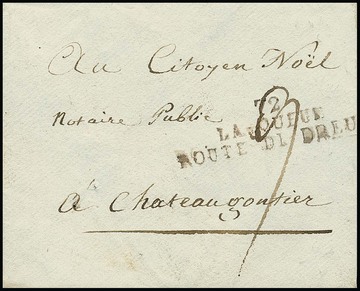 Au Citoyen Noël
Notaire Public
72
LA QUEUE
ROUTE DE DREU
à Chateaugontier